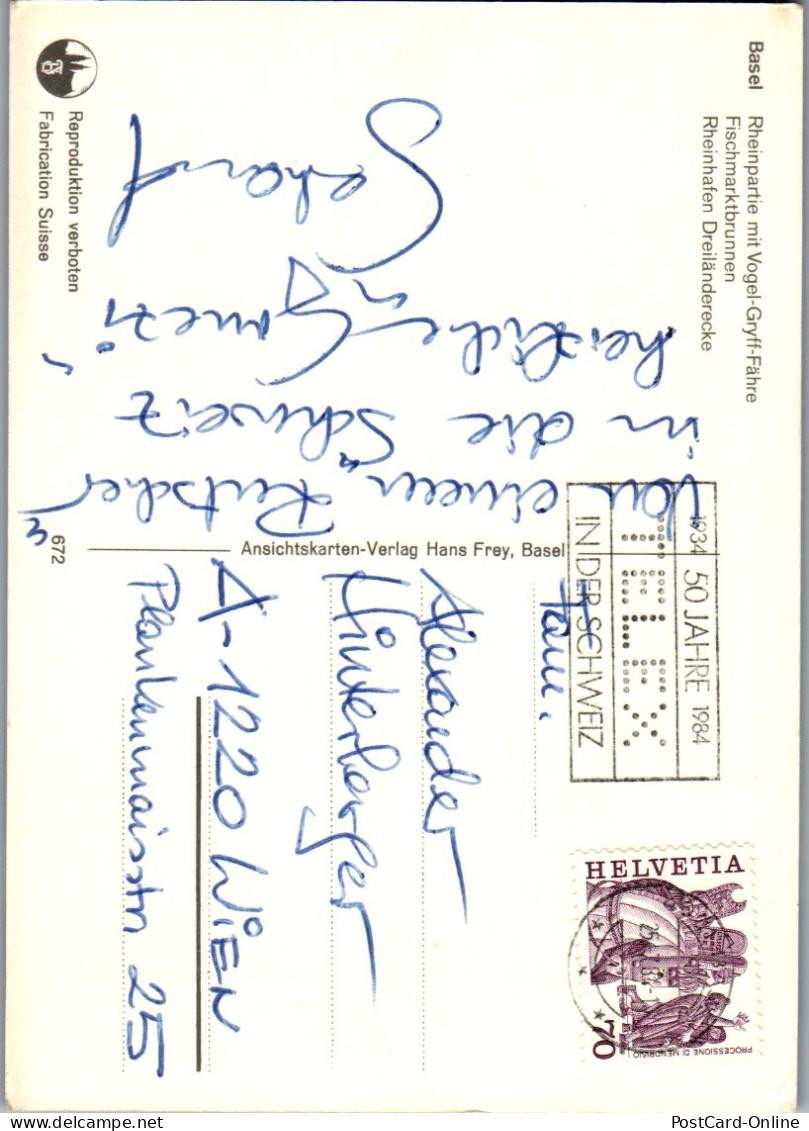 Basel Rheinpartie mit Vogel-Gryff-Fähre
Fischmarktbrunnen
Rheinhafen Dreiländerecke
Von einem "Rutscher"
in die Schweiz
herzliche
Reproduktion verboten
Fabrication Suisse
672
Ansichtskarten-Verlag Hans Frey, Basel
1934 50 JAHRE 1984
TELEX
IN DER SCHWEIZ
HELVETIA
70
PROCESSIONE DI MENDRISIO
Fam.
Alexander
Hinterberger
A-1220 WIEN
Plankenmaisstr 25
PostCard-Online